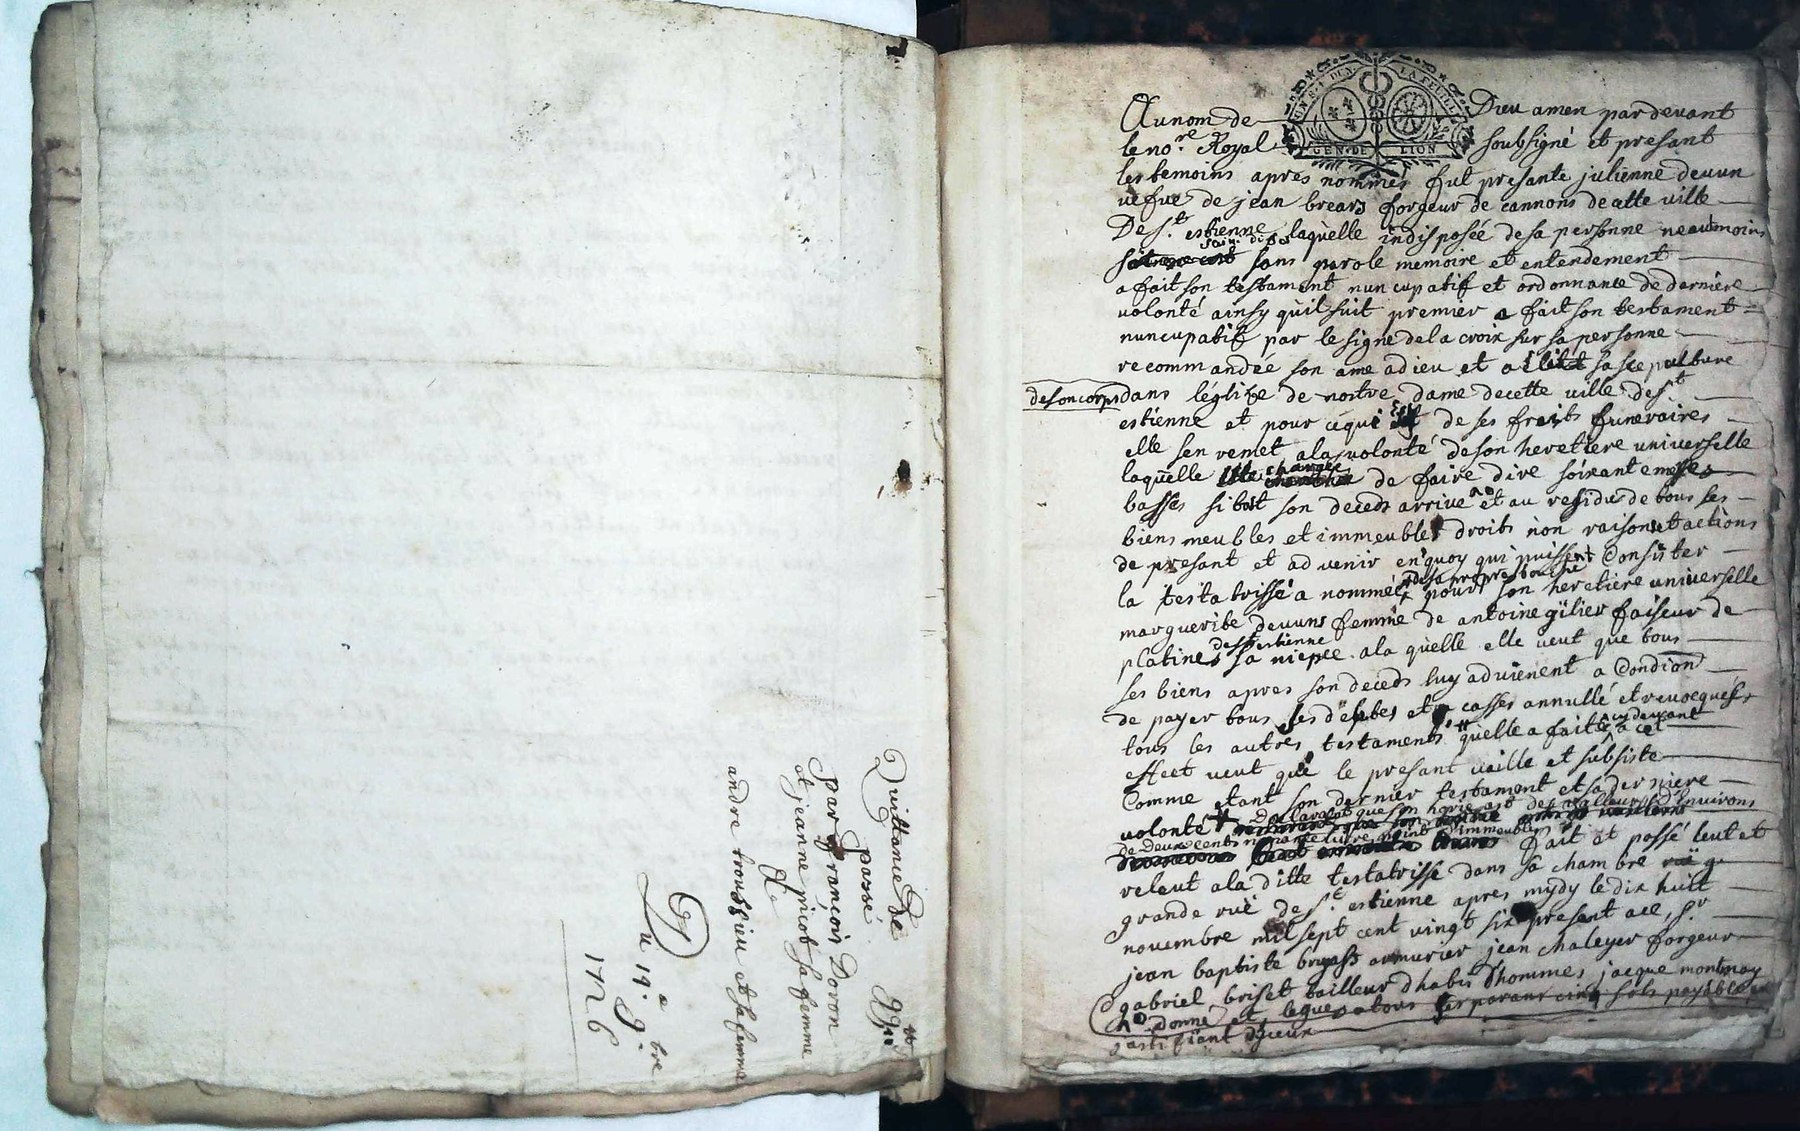 Quittance de
passé
par françois Dorron
et jeanne picot sa femme
A
andre tronssieu et sa femme
Du 19.e 9.bre
1726
GEN DE LION
Au nom de Dieu amen par devant
le no.re Royal soubsigné et presant
les temoins apres nommés fut presante julienne devun
vefue de jean brears forgeur de cannons de cette ville
De s.t estienne laquelle indisposée de sa personne neautmoins
saine de ses sans parole memoire et entendement
a fait son testament nuncupatif et ordonnance de derniere
volonté ainsy quil suit premier a fait son testament
nuncupatif par le signe de la croix sur sa personne
recommandée son ame a dieu et a élit sa sepulture
de son corps dans léglize de nostre dame de cette ville de s.t
estienne et pour ce qui est de ses fraits funeraires
elle sen remet a la volonté de son heretiere universelle
laquelle elle charge de faire dire soixante messes
basses si tot son deceds arrive et au residu de tous ses
biens meubles et immeubles droits non raisons et actions
de presant et advenir en quoy qui puissent Consister
la testatrisse a nommée de sa propre bouche pour son heretiere universelle
marguerite devuns femme de antoine gilier faiseur de
platines de s.t estienne sa niepce a la quelle elle veut que tous
ses biens apres son deceds luy advienent a Condion
de payer tous ses debtes et casses annullé et revocqués
tous les autres testaments quelle a faite cy devant a cet
effect veut que le presant vaille et subsiste
Comme etant son dernier testament et sa derniere
volonté Declarant que son horie est de valleur d'Environs
de deux cents nonante livres point d'immeubles fait et passé leut et
releut a la ditte testatrisse dans sa chambre rüe g
grande rue de s.t estienne apres mydy le dix huit
novembre mil sept cent vingt six presant ace, s.r
jean baptiste bryass armurier jean chaleyer forgeur
gabriel briset tailleur dhabis d'hommes jacque montmay
donné et leques a tous les parans cinq sols payable